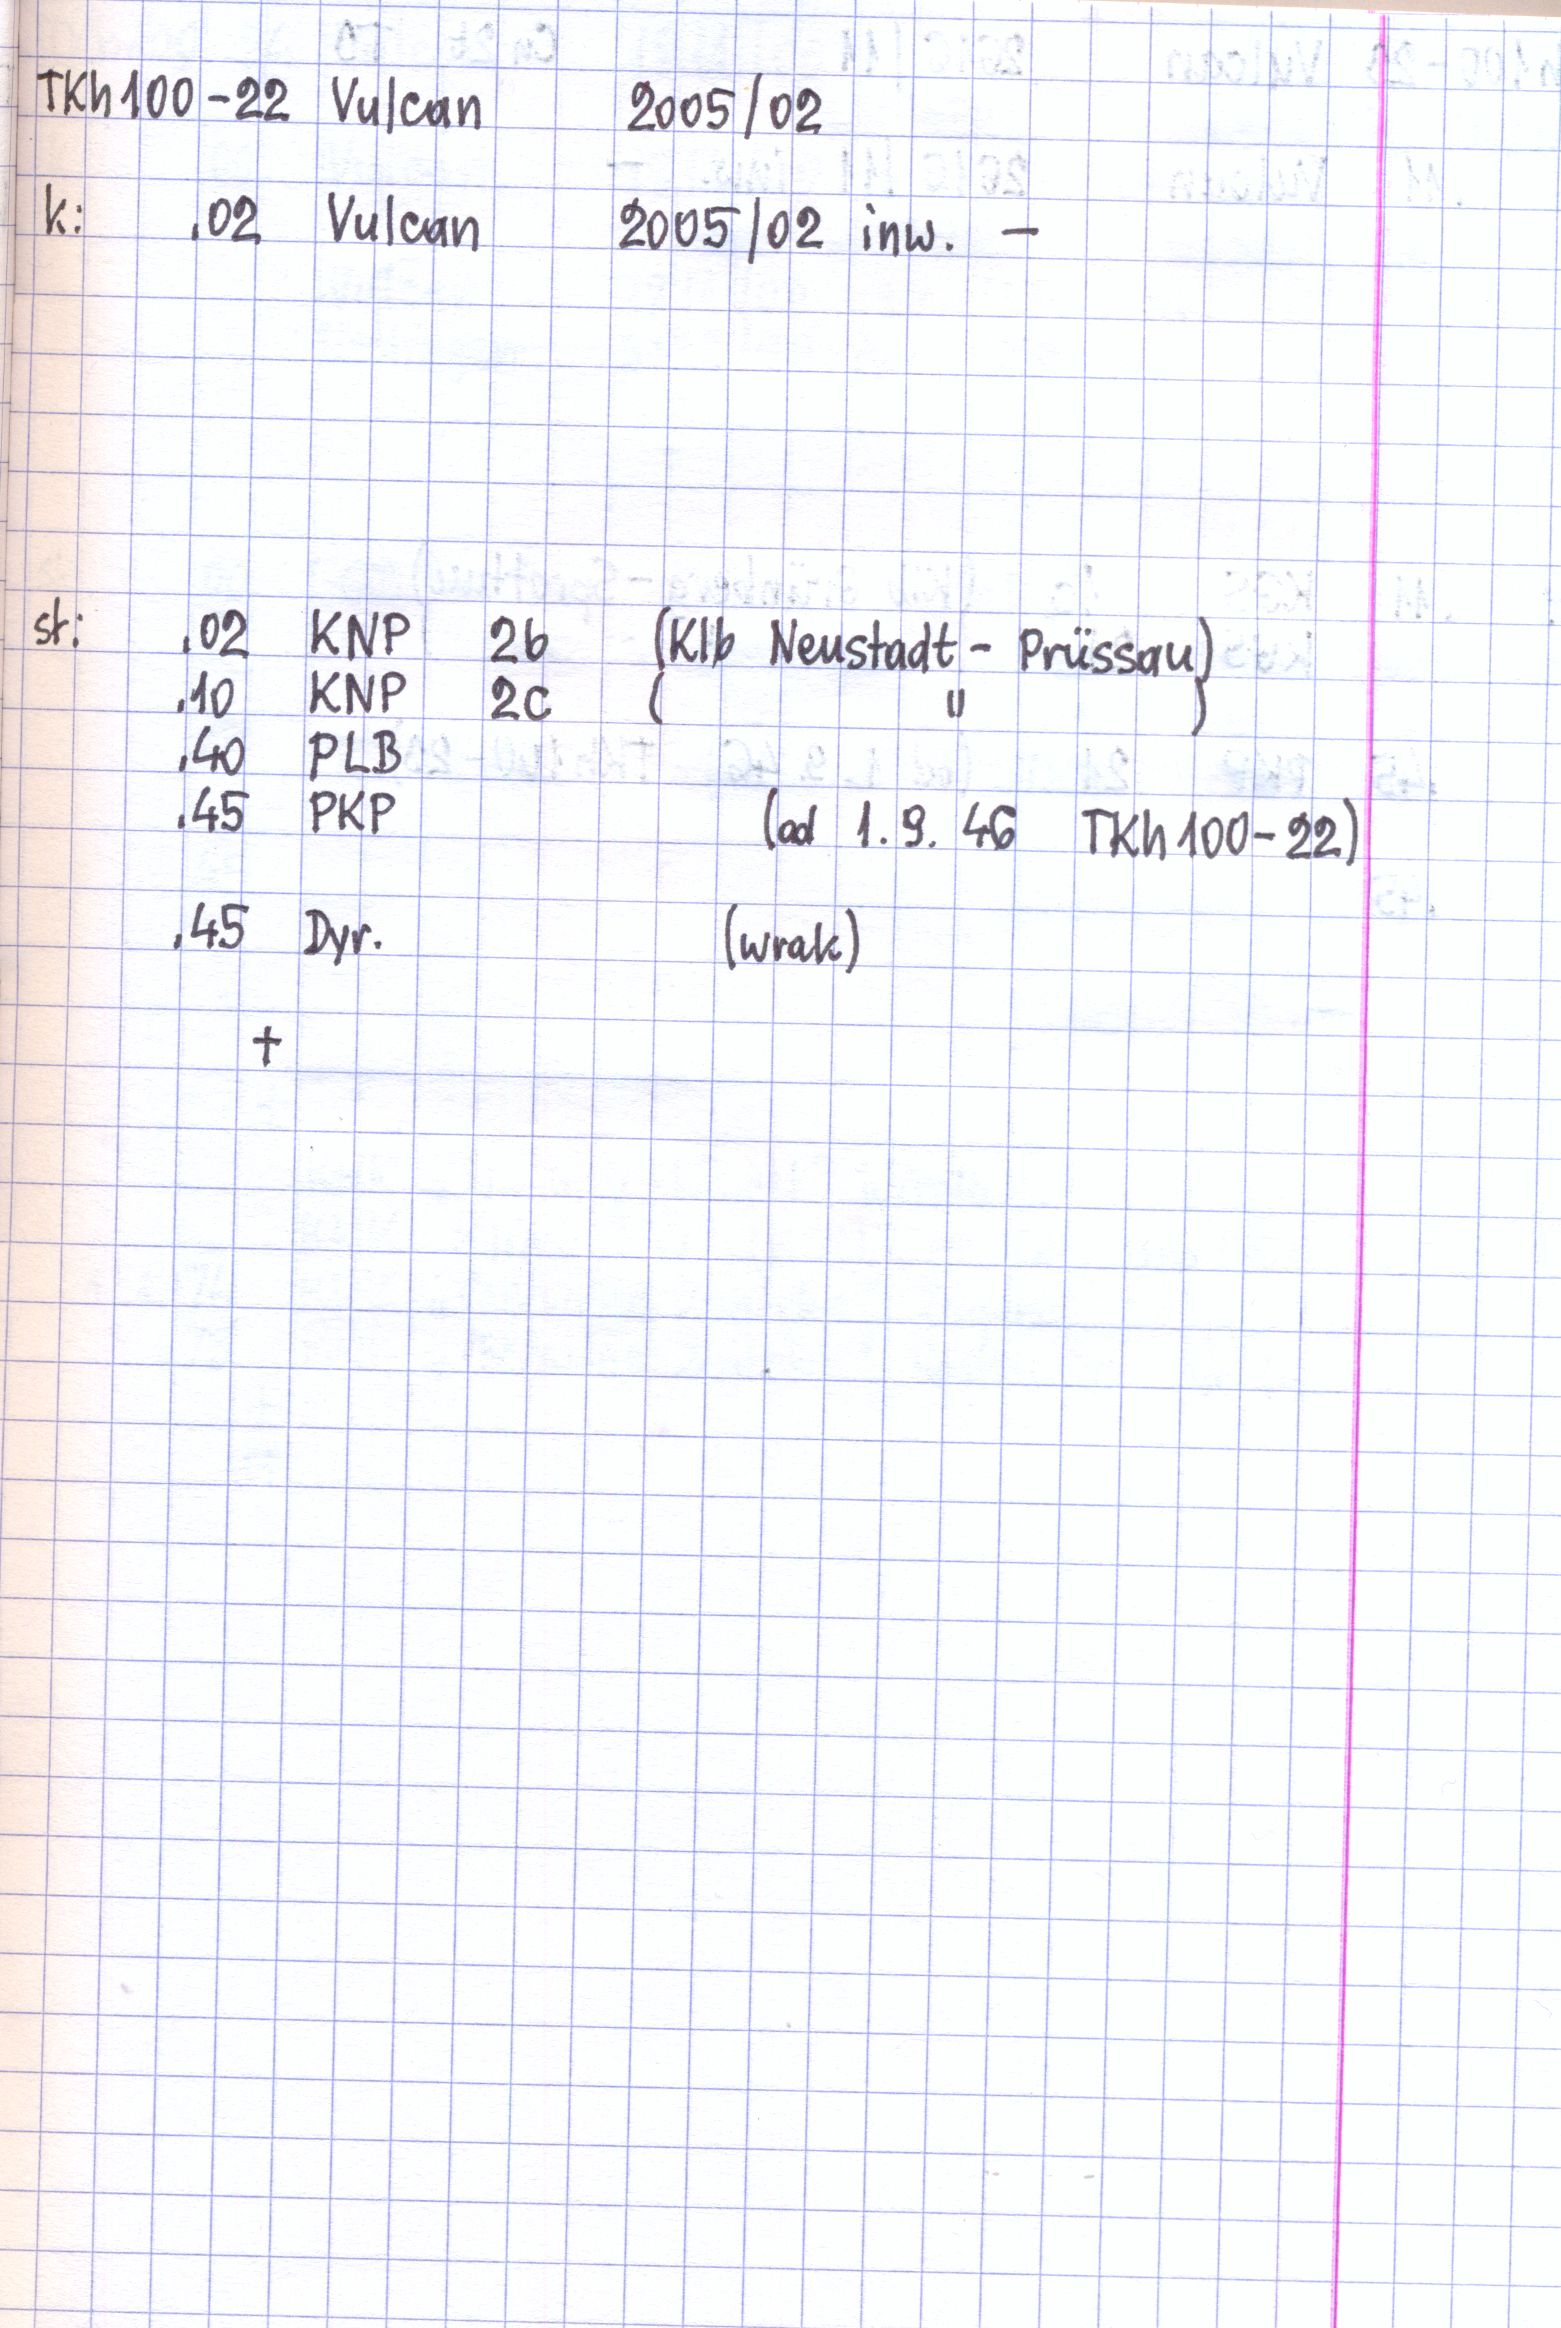 TKh100-22 Vulcan 2005/02
k: .02 Vulcan 2005/02 inw. —
st: .02 KNP 2b (Klb Neustadt - Prüssau)
.10 KNP 2c ( " )
.40 PLB
.45 PKP (od 1.9.46 TKh100-22)
.45 Dyr. (wrak)
+